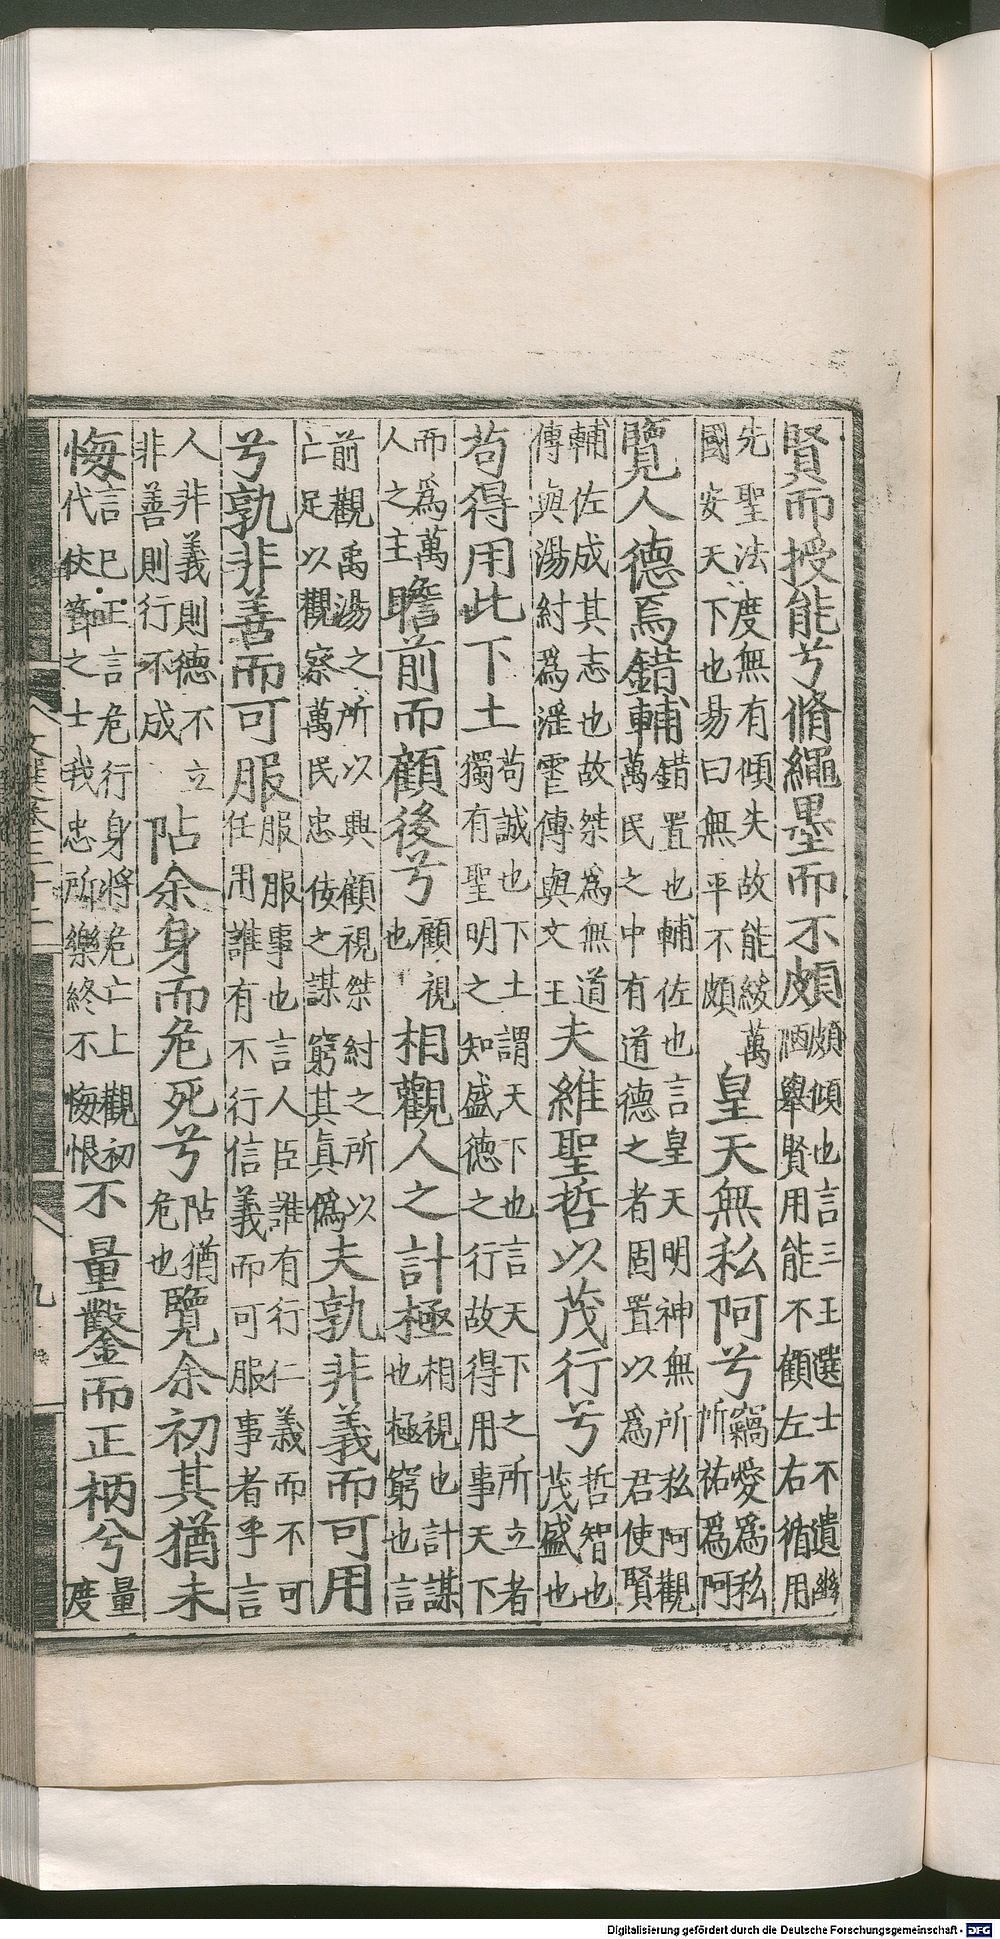 賢而授能兮脩繩墨而不頗頗傾也言三王選士不遺幽陋舉賢用能不顧左右循用
先聖法度無有傾失故能綏萬國安天下也易曰無平不頗皇天無私阿兮竊愛爲私所祐爲阿
覽人德焉錯輔錯置也輔佐也言皇天明神無所私阿觀萬民之中有道德之者因置以爲君使賢
輔佐成其志也故桀爲無道傳與湯紂爲淫虐傳與文王夫維聖哲以茂行兮哲智也茂盛也
苟得用此下土苟誠也下土謂天下也言天下之所立者獨有聖明之知盛德之行故得用事天下
而爲萬人之主瞻前而顧後兮顧視也相觀人之計極相視也計謀也極窮也言
前觀禹湯之所以興顧視桀紂之所以亡足以觀察萬民忠佞之謀窮其眞僞夫孰非義而可用
兮孰非善而可服服服事也言人臣誰有行仁義而不可任用誰有不行信義而可服事者乎言
人非義則德不立非善則行不成阽余身而危死兮阽猶危也覽余初其猶未
悔言己正言危行身將危亡上觀初代伏節之士我忠所樂終不悔恨不量鑿而正枘兮量度
文選卷三十二
九
Digitalisierung gefördert durch die Deutsche Forschungsgemeinschaft - DFG